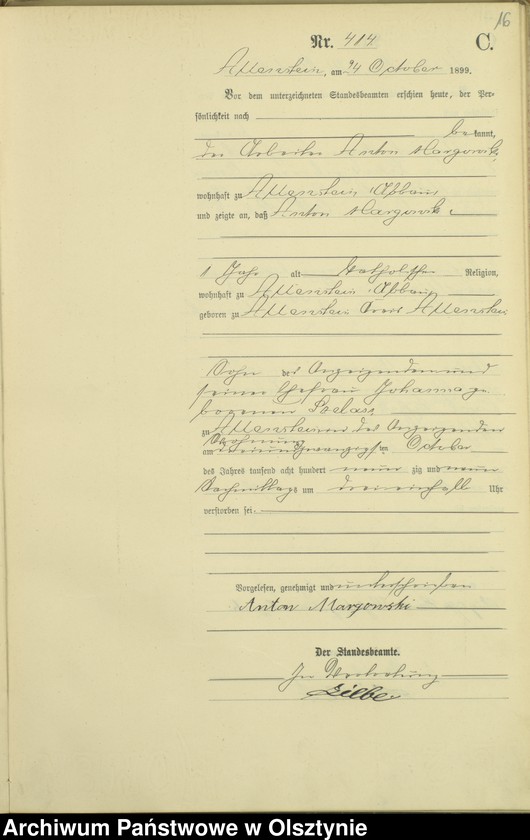 16
Nr. 414 C.
Allenstein, am 24 October 1899.
Vor dem unterzeichneten Standesbeamten erschien heute, der Per-
sönlichkeit nach
bekannt,
der Arbeiter Anton Margowski,
wohnhaft zu Allenstein Abbau
und zeigte an, daß Anton Margowski,
1 Jahr alt katholischer Religion,
wohnhaft zu Allenstein Abbau
geboren zu Allenstein Kreis Allenstein
Sohn des Anzeigenden und
seiner Ehefrau Johanna ge
borenen
zu Allenstein in des Anzeigenden
Wohnung
am dreiundzwanzigsten October
des Jahres tausend acht hundert neun zig und neun
Nachmittags um drei einhalb Uhr
verstorben sei.
Vorgelesen, genehmigt und unterschrieben
Anton Margowski
Der Standesbeamte.
In Vertretung
Archiwum Państwowe w Olsztynie